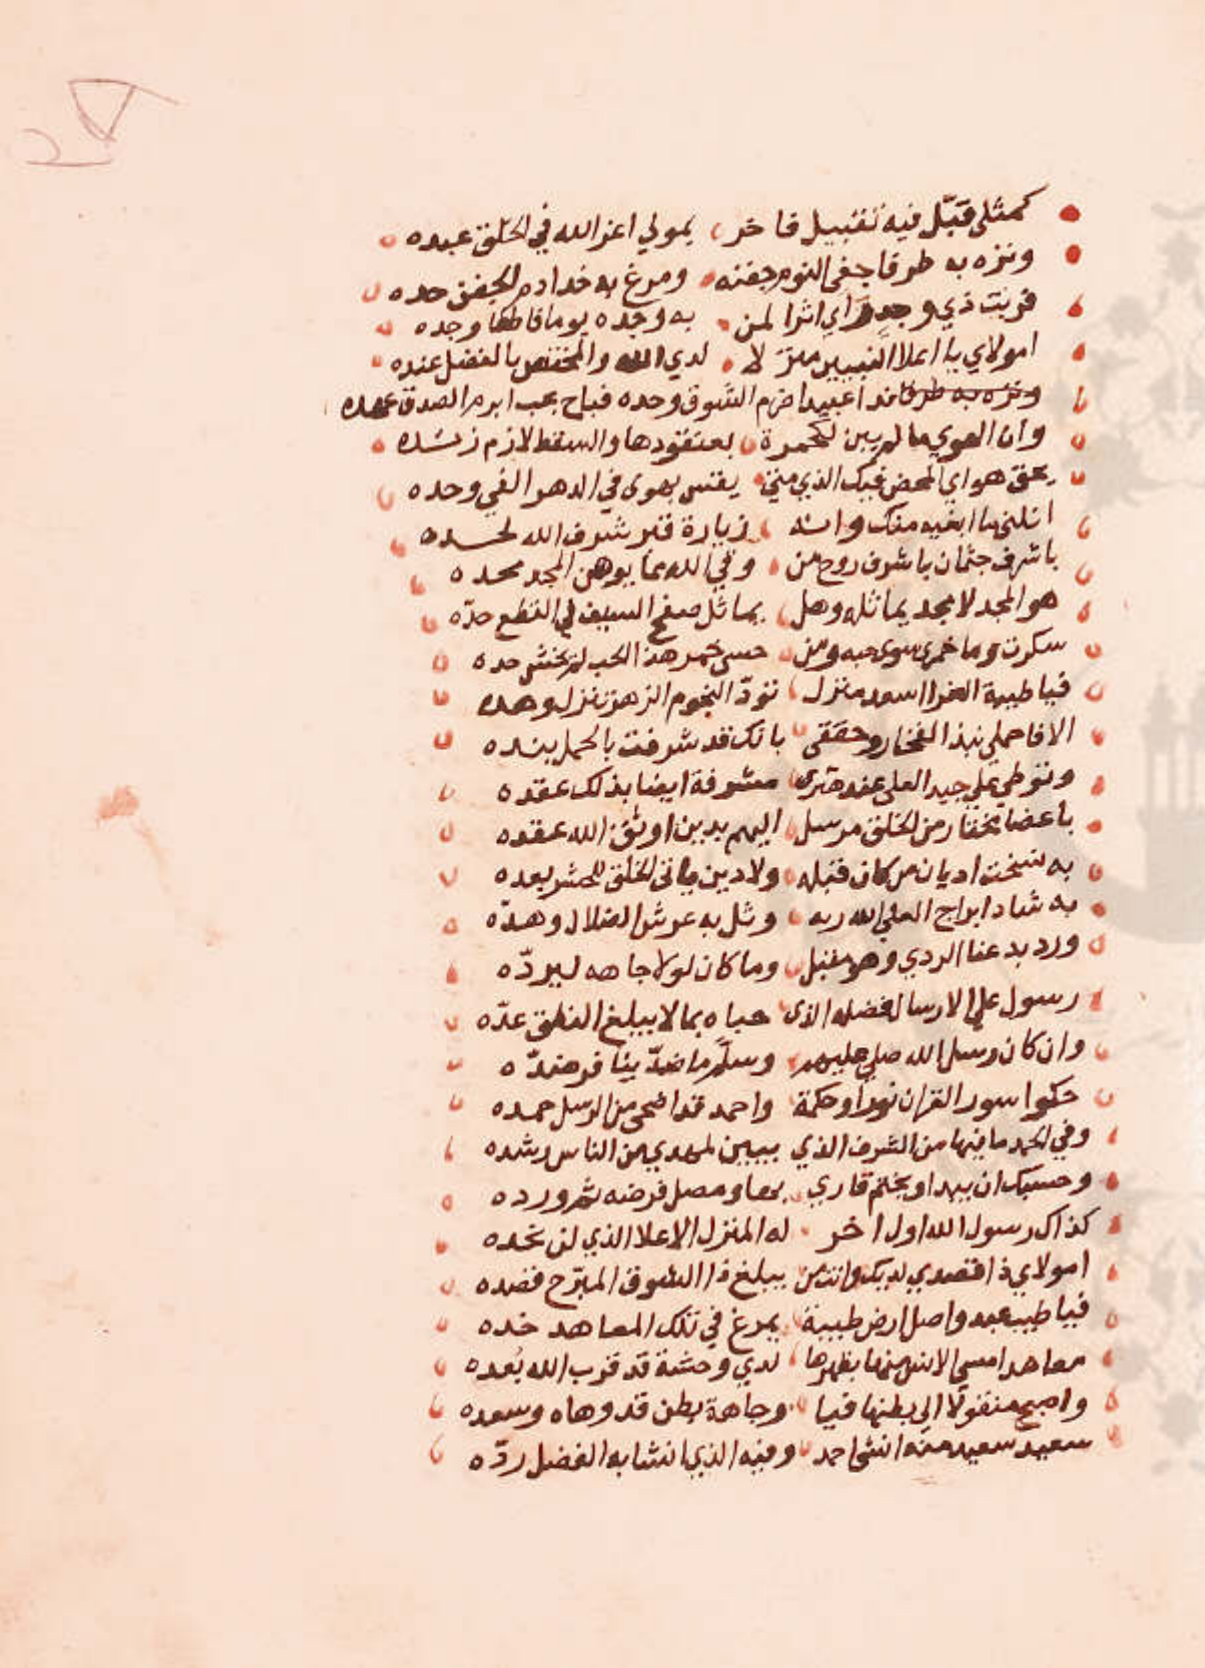 كمثلي قبّل فيه تقبيل فاخر بمولي اعز الله في الخلق عبده
ونزه به طرفا جفى النوم جفنه ومرغ به خدا دم الجفن حده
فربت ذي وجد راي اثرا لمن به وجده يوما فاطفا وجده
امولاي يا اعلا النبيين منزلا لدي الله والمختص بالفضل عنده
اعبيدا ضرم الشوق وحده فباح بحب ابرم الصدق عهده
وان الهوي ما لم يبن لمحمرة بعنقودها والسقط لازم زنده
بحق هواي المحض فيك الذي متى يقس بهوى في الدهر الفي وحده
انلني ما ابغيه منك وانه زيارة قبر شرف الله لحده
باشرف جثمان باشرف روح من وفي الله عما يوهن المجد مجده
هو المجد لا مجد يماثله وهل يماثل صفح السيف في القطع حدّه
سكرت وما خمرى سوى حبه ومن حسى خمر هذا الحب لم يخش حده
فيا طيبة الغرا اسعد منزل تودّ النجوم الزهر تنزل وهده
الا فاحملي بند الفخار وحققى بانك قد شرفت بالحمل بنده
ونوطي علي جيد العلى عقد مشرفة ايضا بذلك عقده
باعضا مختار من الخلق مرسل اليهم بدين اوثق الله عقده
به نسخت اديان من كان قبله ولا دين ياتي الخلق للحشر بعده
به شاد ابراج العلي الله ربه وثل به عرش الضلال وهدّه
ورد به عنا الردي وهو مقبل وما كان لولا جاهه ليردّه
رسول علي الارسال فضله الذى حباه بما لا يبلغ النطق عدّه
وان كان رسل الله صلي عليهم وسلم ما ضدّ ينافر ضدّه
حكوا سور القران نورا وحكمة واحمد قد اضحى من الرسل حمده
وفي الحمد ما فيها من الشرف الذي يبين لمهدي من الناس رشده
وحسبك ان يبدا ويختم قاري بها ومصل فرضه ثم ورده
كذاك رسول الله اول اخر له المنزل الاعلا الذي لن نحده
امولاي ذا قصدي لديك وانت من يبلغ ذا الشوق المبرّح قصده
فيا طيب عبد واصل ارض طيبة يمرغ في تلك المعاهد خده
معاهد امسي الانس منها بظهرها لدي وحشة قد قرب الله بُعده
واصبح منقولا الي بطنها فيا وجاهة بطن قد وهاه وسعده
سعيد سعيد منه انشى احمد ومنه الذي انشا به الفضل ردّه